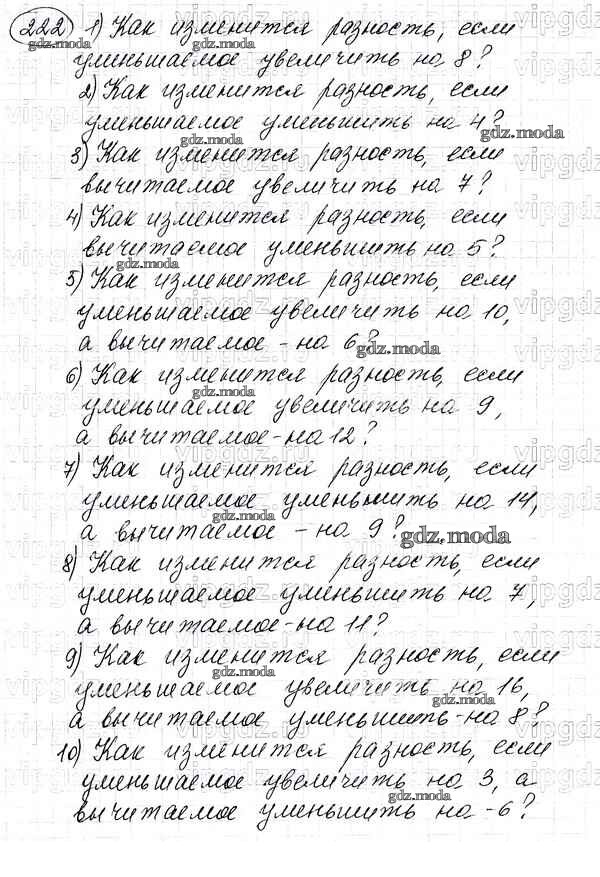 222 1) Как изменится разность, если
уменьшаемое увеличить на 8?
2) Как изменится разность, если
уменьшаемое уменьшить на 4?
3) Как изменится разность, если
вычитаемое увеличить на 7?
4) Как изменится разность, если
вычитаемое уменьшить на 5?
5) Как изменится разность, если
уменьшаемое увеличить на 10,
а вычитаемое - на 6?
6) Как изменится разность, если
уменьшаемое увеличить на 9,
а вычитаемое - на 12?
7) Как изменится разность, если
уменьшаемое уменьшить на 14,
а вычитаемое - на 9?
8) Как изменится разность, если
уменьшаемое уменьшить на 7,
а вычитаемое - на 11?
9) Как изменится разность, если
уменьшаемое увеличить на 16,
а вычитаемое уменьшить - на 8?
10) Как изменится разность, если
уменьшаемое увеличить на 3, а
вычитаемое уменьшить на - 6?